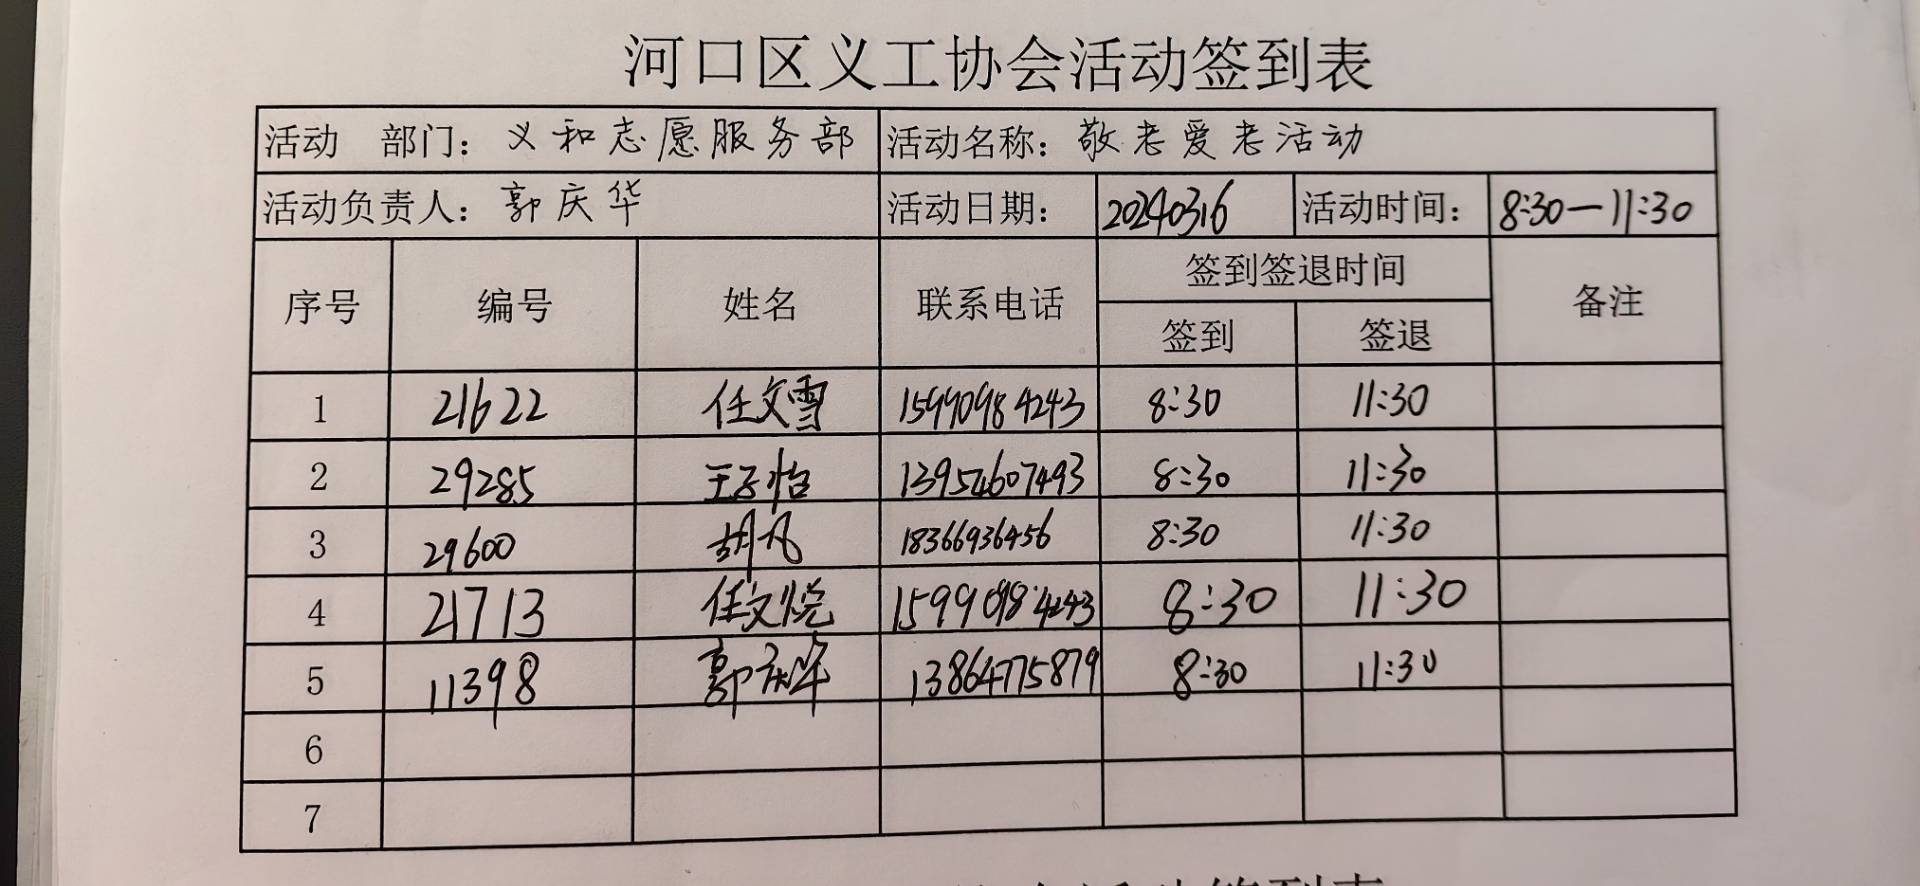 河口区义工协会活动签到表
活动 部门：义和志愿服务部 活动名称：敬老爱老活动
活动负责人：郭庆华 活动日期： 20240316 活动时间： 8:30—11:30
序号 编号 姓名 联系电话 签到签退时间 备注
签到 签退
1 21622 任文雪 15990984243 8:30 11:30
2 29285 王子怡 13954607493 8:30 11:30
3 29600 胡凡 18366936456 8:30 11:30
4 21713 任文悦 15990984243 8:30 11:30
5 11398 郭庆华 13864775879 8:30 11:30
6
7